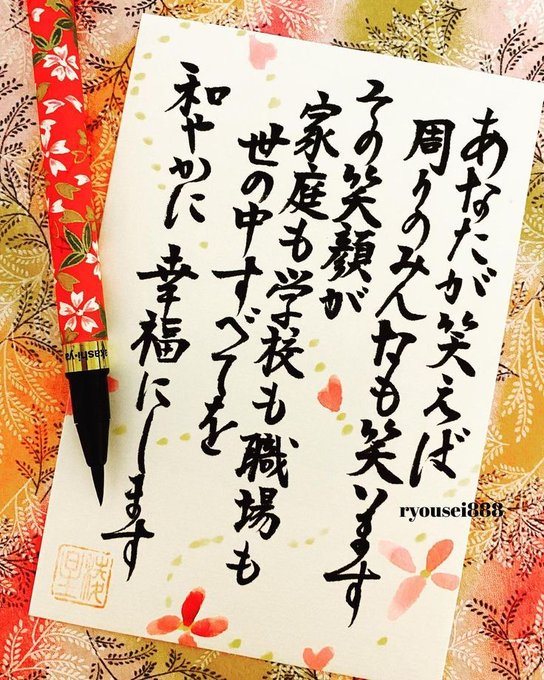 あなたが笑えば
周りのみんなも笑います
その笑顔が
家庭も学校も職場も
世の中すべてを
和やかに幸福にします
ryousei888
akashi-ya